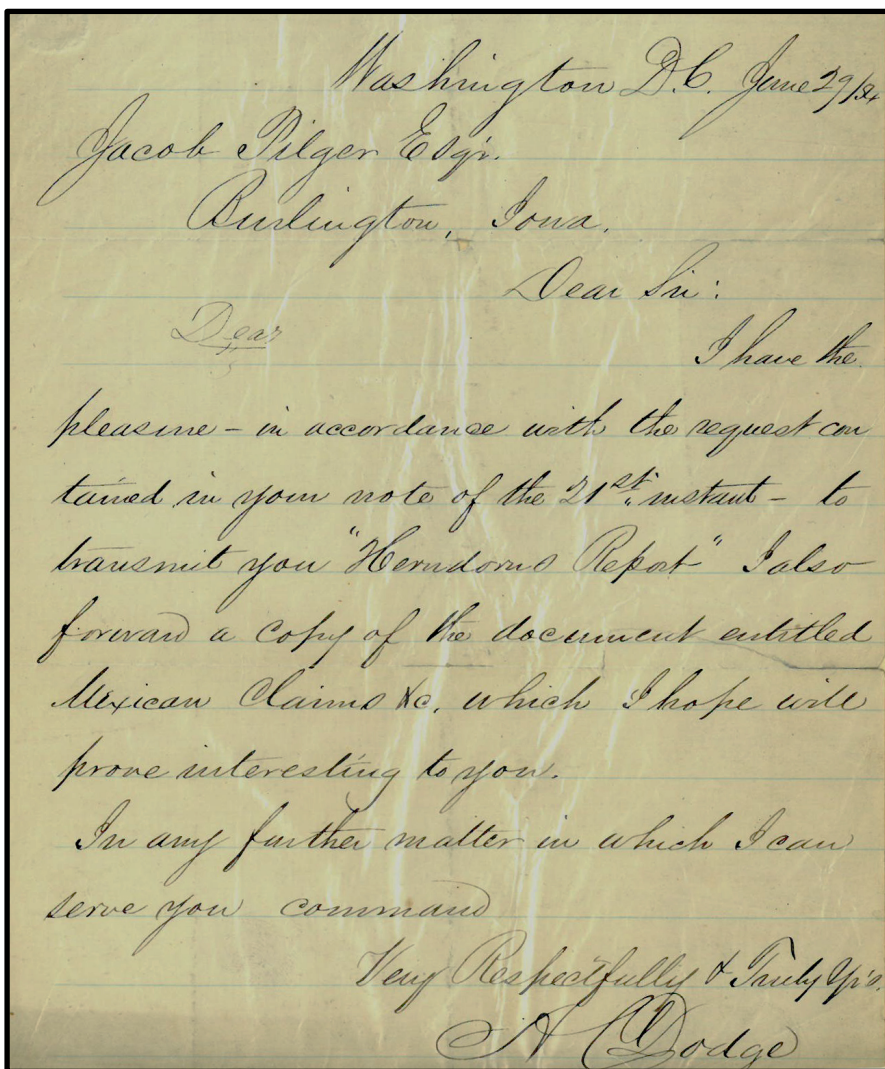 Washington D.C. June 29/54
Jacob Pilger Esqr.
Burlington, Iowa.
Dear Sir:
Dear
I have the
pleasure - in accordance with the request con
tained in your note of the 21st instant - to
transmit you "Herndons Report" I also
forward a copy of the document entitled
Mexican Claims &c. which I hope will
prove interesting to you.
In any further matter in which I can
serve you command
Very Respectfully & Truly Yr's.
A C Dodge